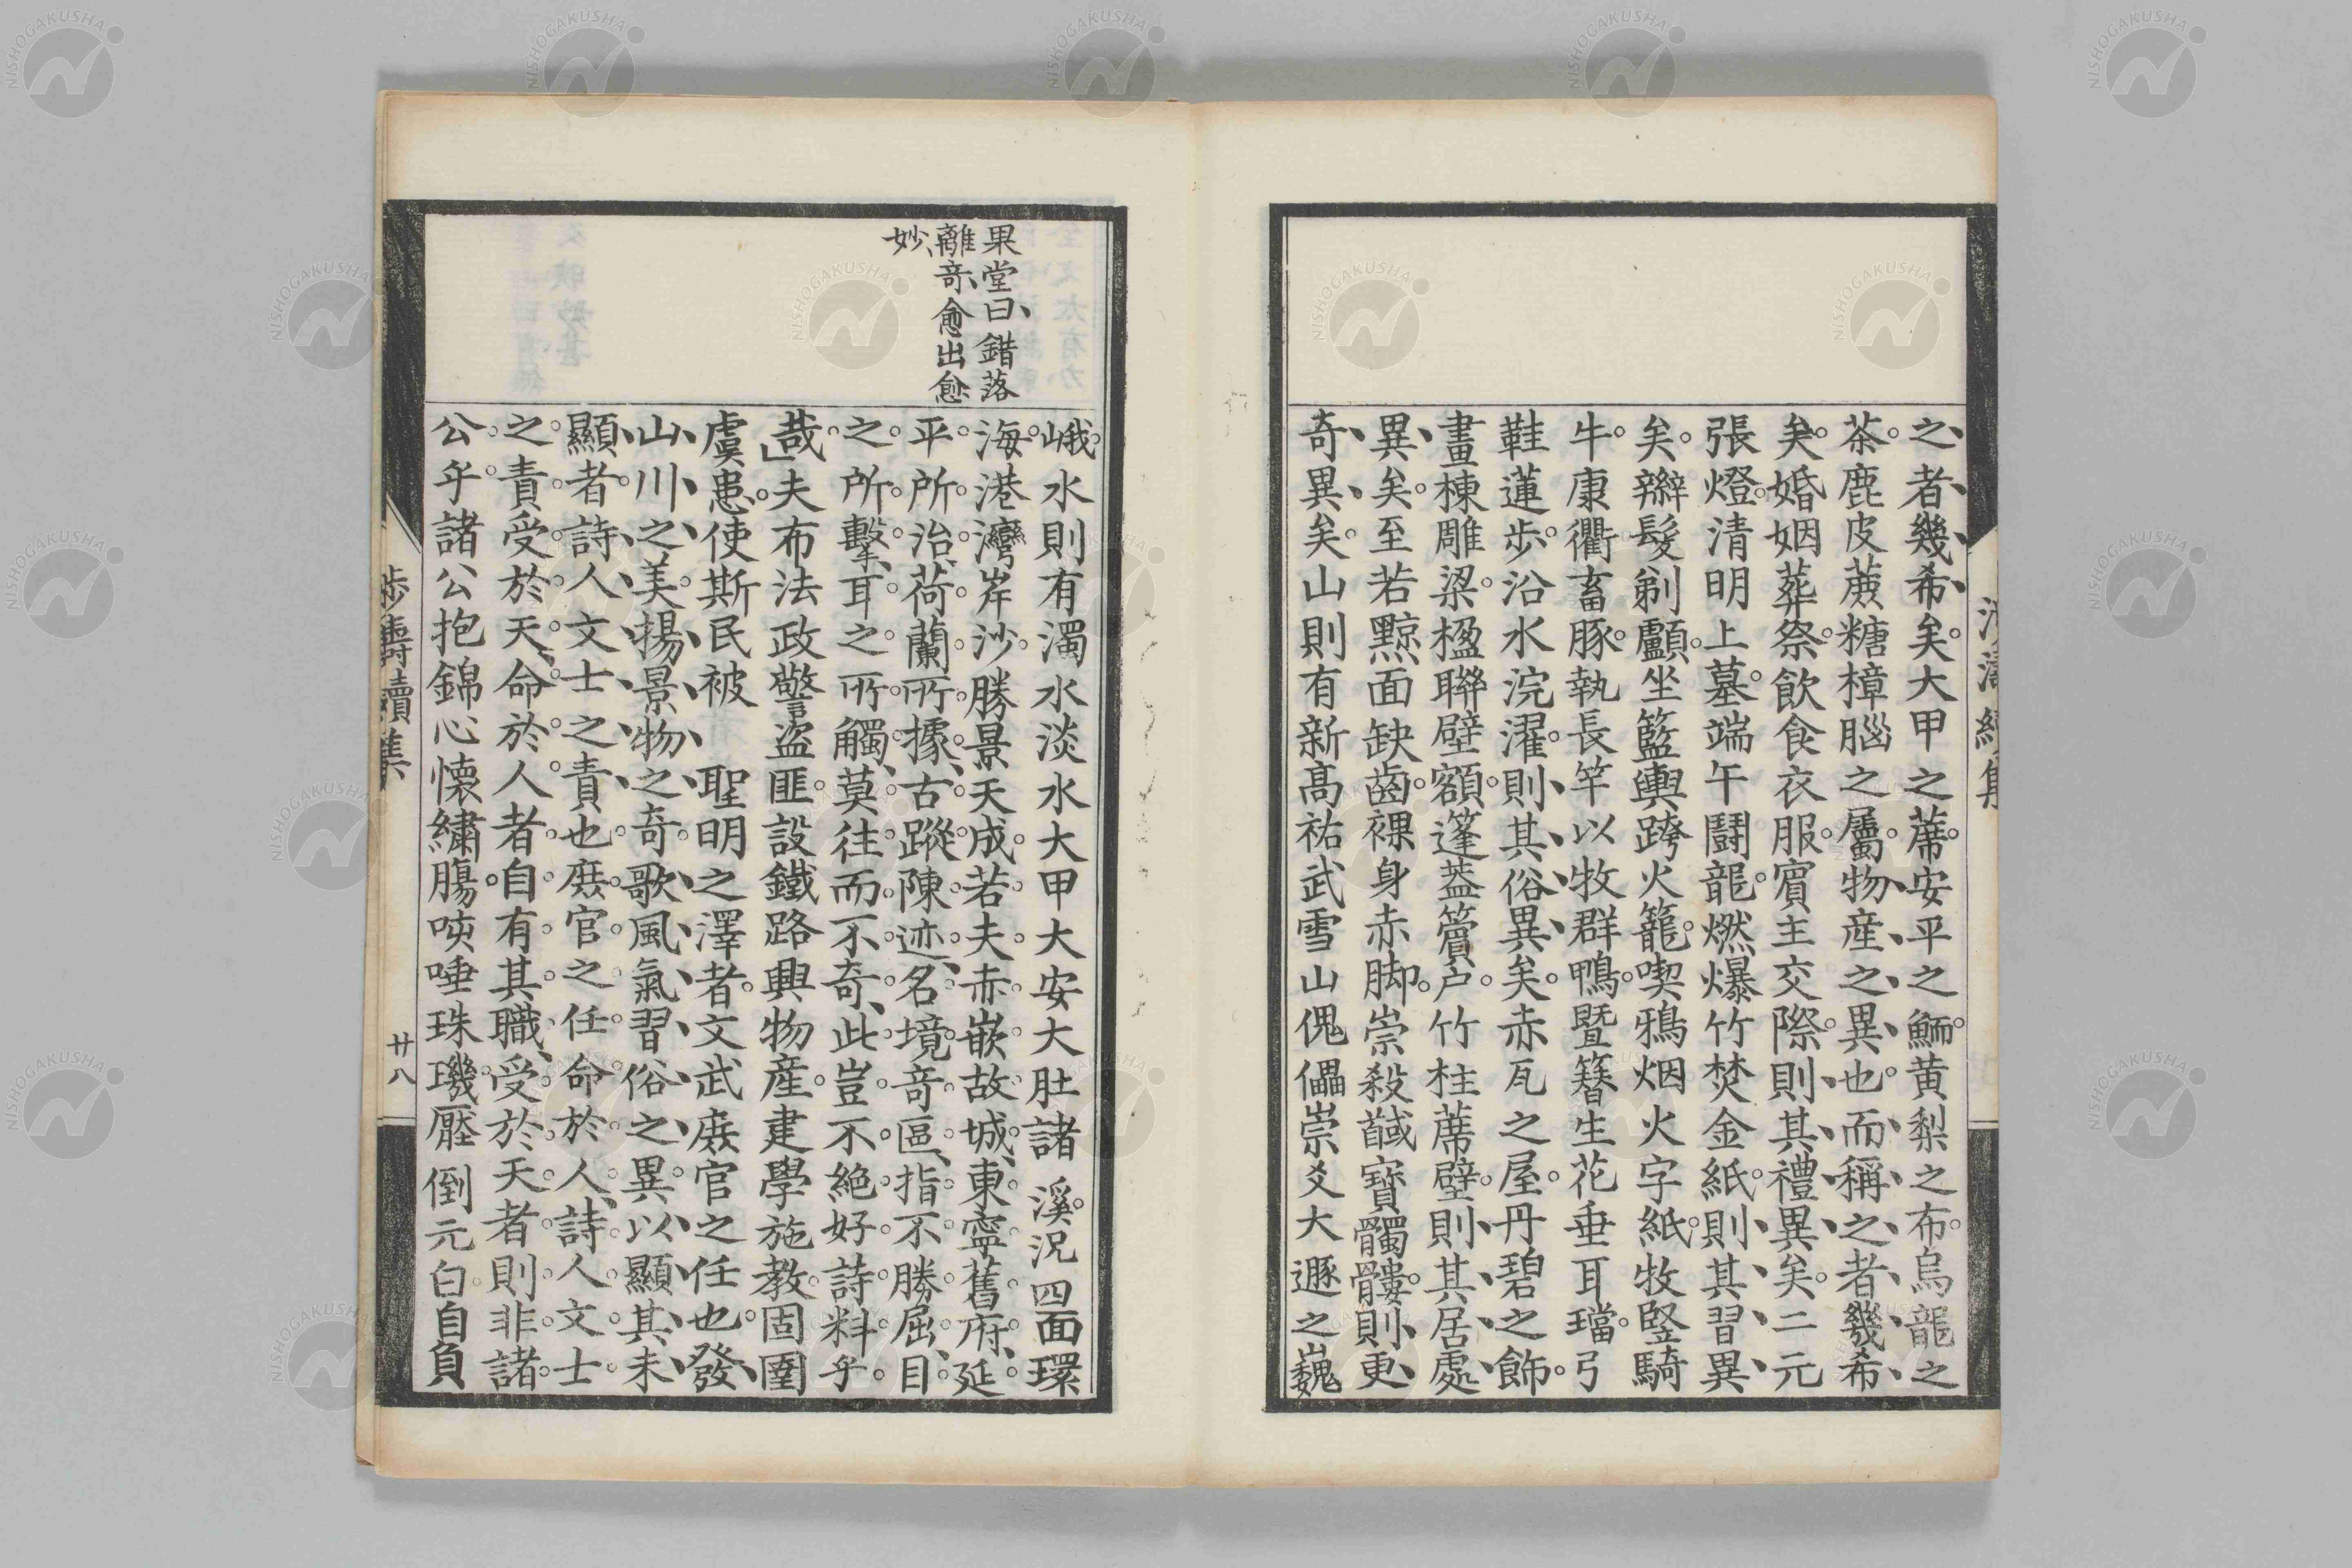 之者幾希矣大甲之蓆安平之鰤黄梨之布烏龍之
茶鹿皮蔗糖樟腦之屬物産之異也而稱之者幾希
矣婚姻葬祭飲食衣服賓主交際則其禮異矣二元
張燈清明上墓端午鬪龍燃爆竹焚金紙則其習異
矣辮髮剃顱坐籃輿跨火籠喫鴉烟火字紙牧竪騎
牛康衢畜豚執長竿以牧群鴨暨簪生花垂耳璫弓
鞋蓮步沿水浣濯則其俗異矣赤瓦之屋丹碧之飾
畫棟雕梁楹聯壁額篷蓋簀戶竹柱蓆壁則其居處
異矣至若黥面缺齒裸身赤脚崇殺馘寶髑髏則更
奇異矣山則有新高祐武雪山傀儡崇爻大遯之巍
歩濤續集
果堂曰、錯落
離奇、愈出愈
妙、
峨水則有濁水淡水大甲大安大肚諸溪況四面環
海港灣岸沙勝景天成若夫赤嵌故城東寧舊府延
平所治荷蘭所據古蹤陳迹名境奇區指不勝屈目
之所擊耳之所觸莫往而不奇此豈不絶好詩料乎
哉」夫布法政警盜匪設鐵路興物産建學施教固圉
虞患使斯民被　聖明之澤者文武庶官之任也發
山川之美揚景物之奇歌風氣習俗之異以顯其未
顯者詩人文士之責也庶官之任命於人詩人文士
之責受於天命於人者自有其職受於天者則非諸
公乎諸公抱錦心懷繡腸咳唾珠璣壓倒元白自負
歩濤續集
廿八
NISHOGAKUSHA